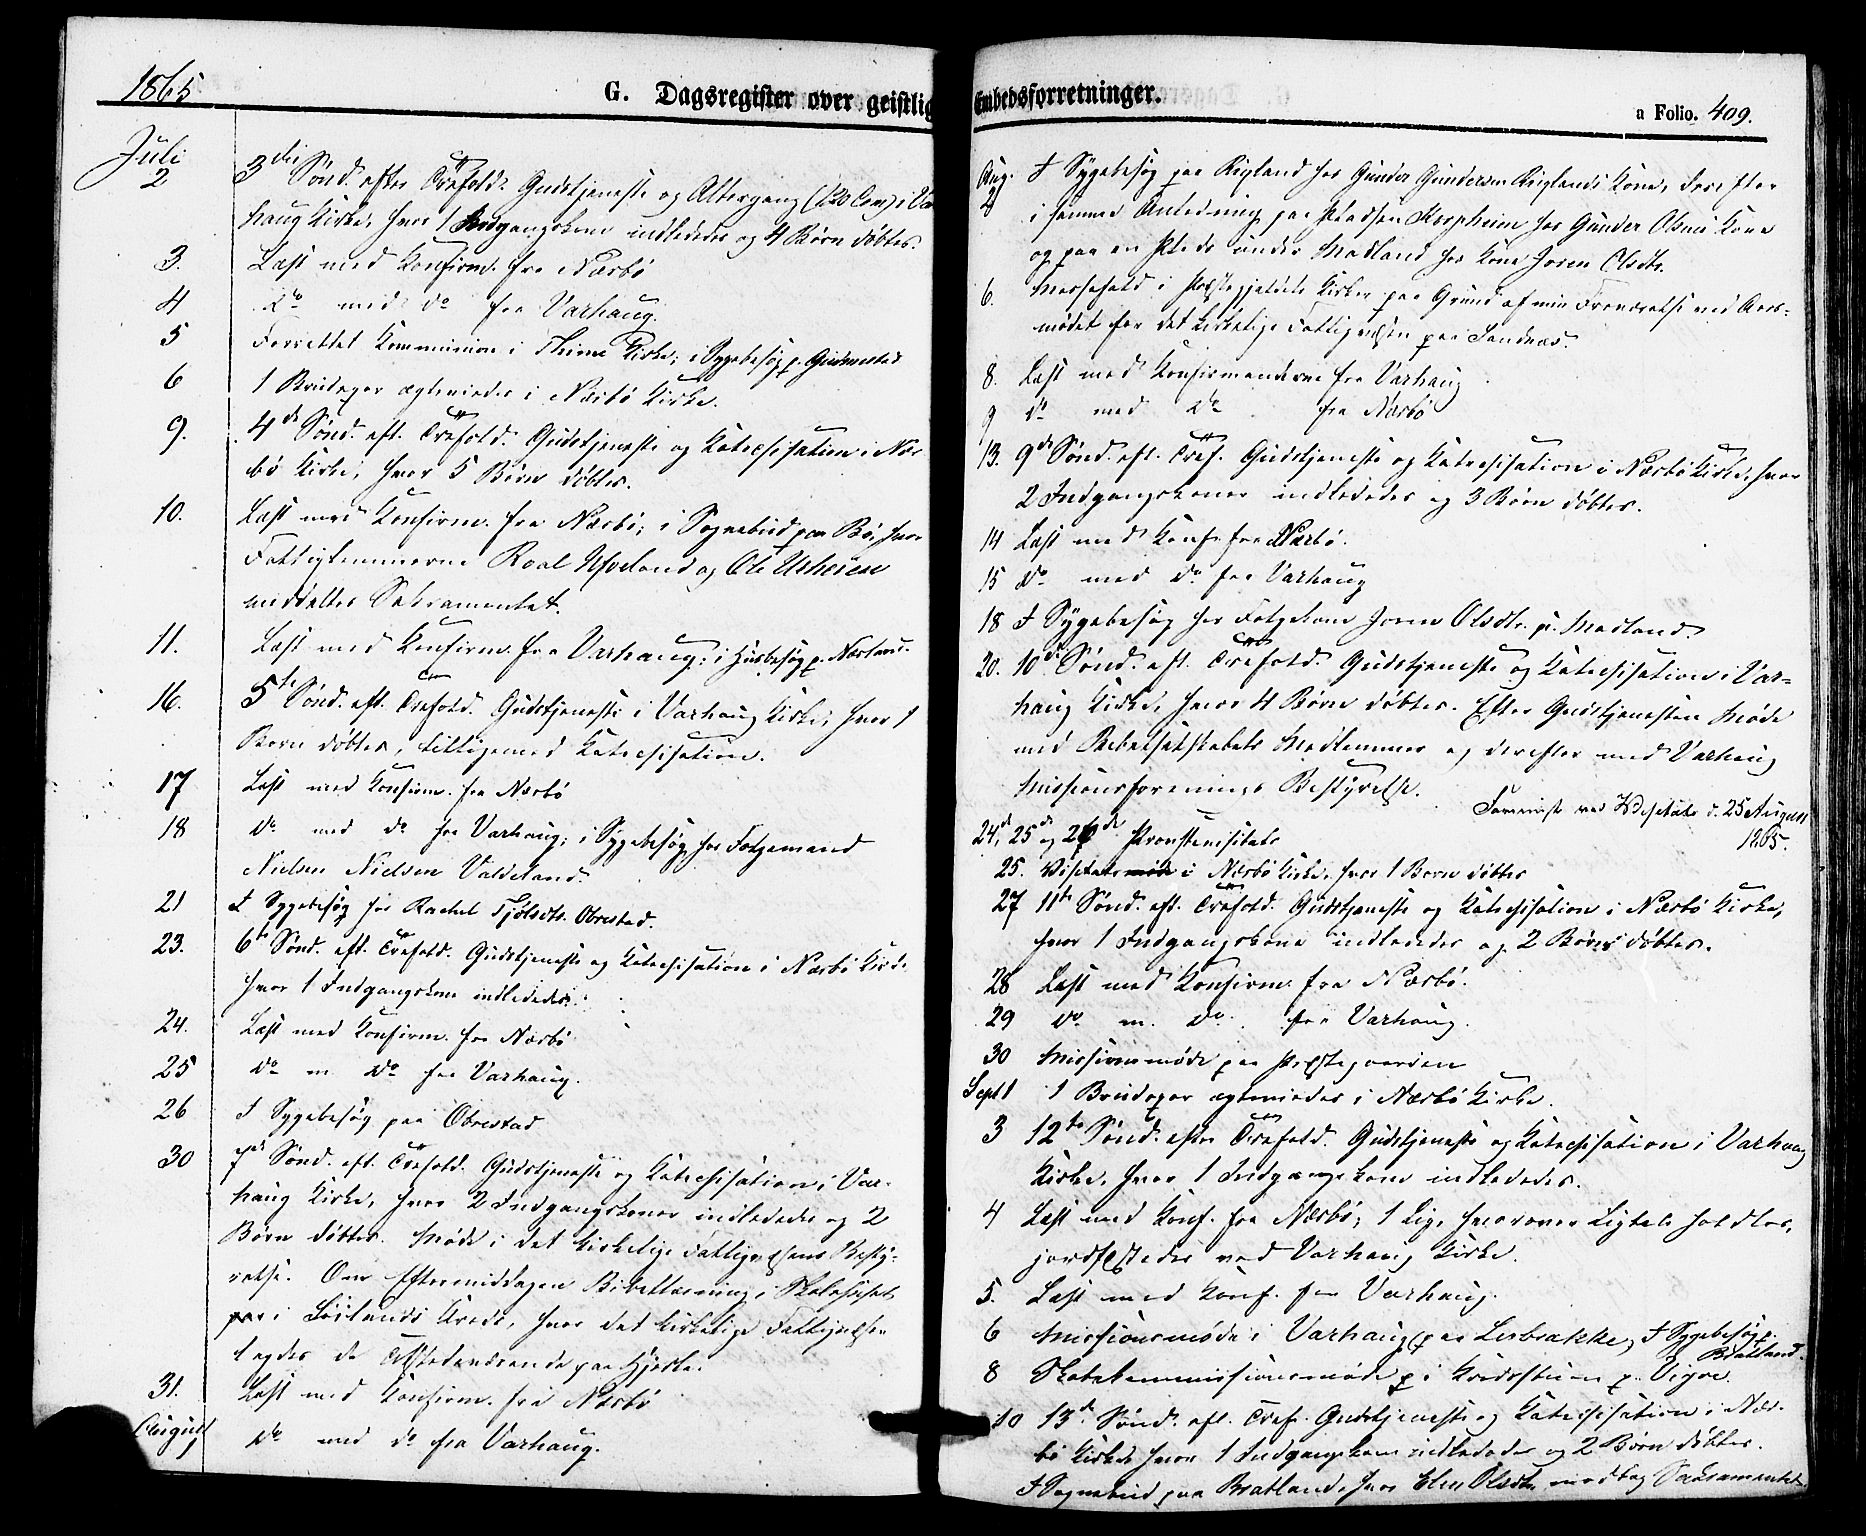 1865
G. Dagsregister over geistlig
Juli
2 3die Sønd. efter Trefold. Gudstjeneste og Altergang (120 Com) i Var
haug Kirke, hvor 1 Indgangskone indlededes og 4 Børn døbtes.
3. Læst med Konfirm. fra Nærbø
4 do med do fra Varhaug.
5 Forrettet Kommunion i Thime Kirke; i Sygebesøg p.
6 1 Brudepar ægteviedes i Nærbø Kirke.
9. 4de Sønd. eft. Trefold. Gudstjeneste og Katechisation i Nær
bø Kirke, hvor 5 Børn døbtes.
10. Læst med Konfirm. fra Nærbø; i Sognebud paa Bø, hvor
Fattiglemmerne Roal og Ole
meddeltes Sakramentet.
11. Læst med Konfirm. fra Varhaug; i Husbesøg p.
16. 5te Sønd. eft. Trefold. Gudstjeneste i Varhaug Kirke, hvor 1
Barn døbtes, tilligemed Katechisation.
17 Læst med Konfirm. fra Nærbø
18 do med do fra Varhaug; i Sygebesøg hos Folgemand
Nielsen Nielsen Valdeland.
21 I Sygebesøg hos Rachel Obrestad.
23. 6te Sønd. eft. Trefold. Gudstjeneste og Katechisation i Nærbø Kirke
hvor 1 Indgangskone indlededes.
24. Læst med Konfirm. fra Nærbø
25 do m do fra Varhaug.
26 I Sygebesøg paa Obrestad
30 7de Sønd. eft. Trefold. Gudstjeneste og Katechisation i Var-
haug Kirke, hvor 2 Indgangskoner indlededes og 2
Børn døbtes. Møde i det kirkelige Fattigvæsens Besty-
relse. Om Eftermiddagen Bibellæsning i Skolehuset
i Kreds, hvor det kirkelige Fattigvæsen
lagdes de Tilstedeværende paa Hjerte.
31. Læst med Konfirm. fra Nærbø
August
1 do med do fra Varhaug.
Embedsforretninger.
a Folio. 409.
Aug. I Sygebesøg paa Rugland hos Gunder Gundersen Ruglands Kone, derefter
2 i samme Anledning paa Pladsen hos Gunder Olsens Kone
og paa en Plads under Madland hos Kone Joren Olsdtr.
6. Messefald i Præstegjeldets Kirker paa Grund af min Fraværelse ved Aars-
mødet for det kirkelige Fattigvæsen paa Sandnæs.
8. Læst med Konfirmanderne fra Varhaug
9 do med do fra Nærbø
13. 9de Sønd. eft. Tref. Gudstjeneste og Katechisation i Nærbø Kirke, hvor
2 Indgangskoner indlededes og 3 Børn døbtes.
14 Læst med Konf. fra Nærbø.
15 do med do fra Varhaug
18 I Sygebesøg hos Folgekone Joren Olsdtr. p. Madland.
20. 10de Sønd. eft. Trefold. Gudstjeneste og Katechisation i Var-
haug Kirke, hvor 4 Børn døbtes. Efter Gudstjenesten Møde
med Bibelselskabets Medlemmer og derefter med Varhaug
Missionsforenings Bestyrelse.
Foreviist ved Visitats d. 25 August
1865.
24de, 25de og 26de Provstevisitats
25. Visitats i Nærbø Kirke, hvor 1 Barn døbtes
27 11te Sønd. eft. Trefold. Gudstjeneste og Katechisation i Nærbø Kirke,
hvor 1 Indgangskone indlededes og 2 Børn døbtes.
28 Læst med Konfirm. fra Nærbø.
29 do m. do fra Varhaug.
30 Missionsmøde paa Præstegaarden
Sept 1 1 Brudepar ægteviedes i Nærbø Kirke.
3 12te Sønd. efter Trefold. Gudstjeneste og Katechisation i Varhaug
Kirke, hvor 1 Indgangskone indlededes.
4 Læst med Konf. fra Nærbø; 1 Lig, hvorover Ligtale holdtes,
jordfæstedes ved Varhaug Kirke.
5. Læst med Konf. fra Varhaug.
6 Missionsmøde i Varhaug (paa Lerbrække) I Sygebesøg p.
Bratland.
8 Skolekommissionsmøde i Kredsstuen p. Vigre.
10 13de Sønd. eft. Tref. Gudstjeneste og Katechisation i Nær-
bø Kirke hvor 1 Indgangskone indlededes og 2 Børn døbtes.
I Sognebud paa Bratland, hvor Elen Olsdtr. modtog Sakramentet